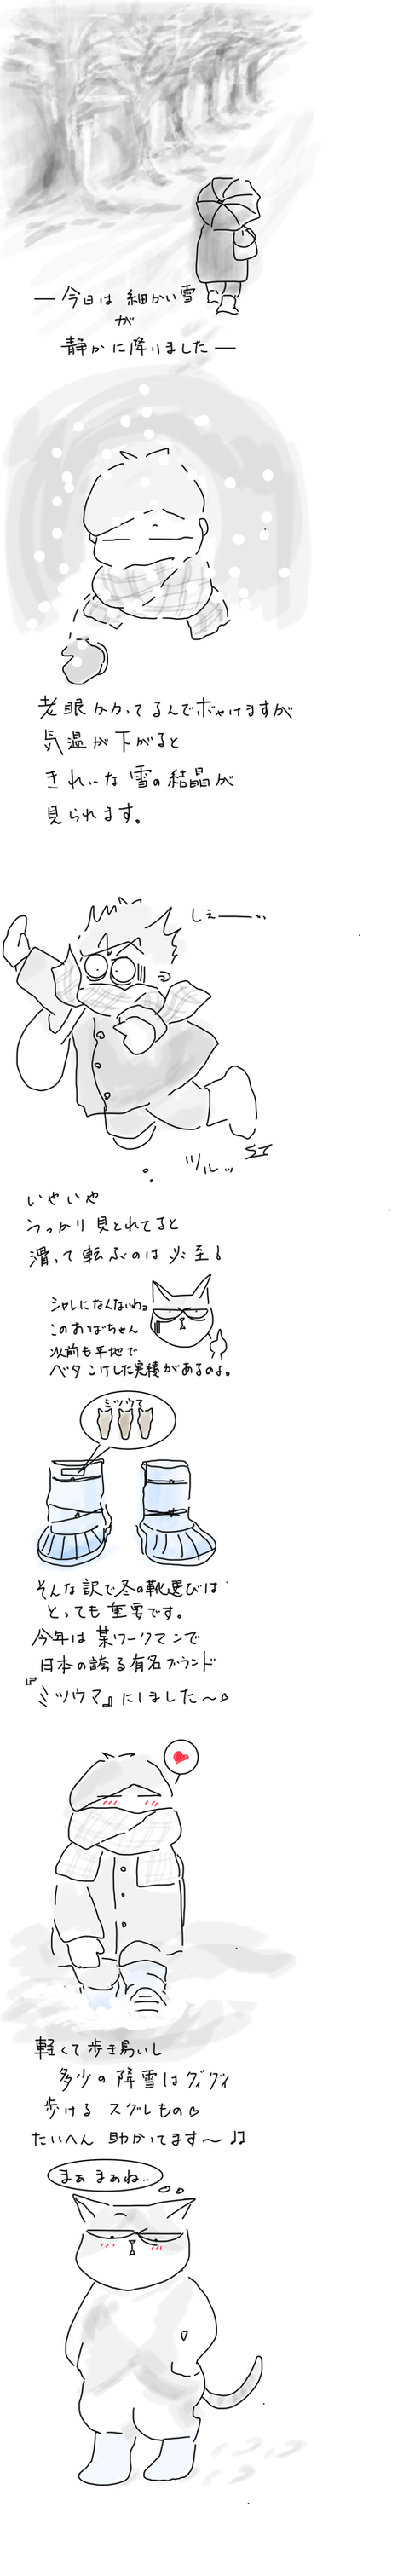 ― 今日は 細かい雪
が
静かに降りました ―
老眼入ってるんでボヤけますが
気温が下がると
きれいな 雪の結晶が
見られます。
しぇ――
ツルッ
いやいや
うっかり見とれてると
滑って転ぶのは必至!
シャレになんないわよ
このおばちゃん
以前も平地で
ベタこけした実績があるのよ。
ミツウマ
そんな訳で冬の靴選びは
とっても重要です。
今年は某ワークマンで
日本の誇る有名ブランド
『ミツウマ』にしました〜♪
軽くて歩き易いし
多少の降雪はグイグイ
歩ける スグレもの♡
たいへん 助かってます〜♫
まぁ まぁね..